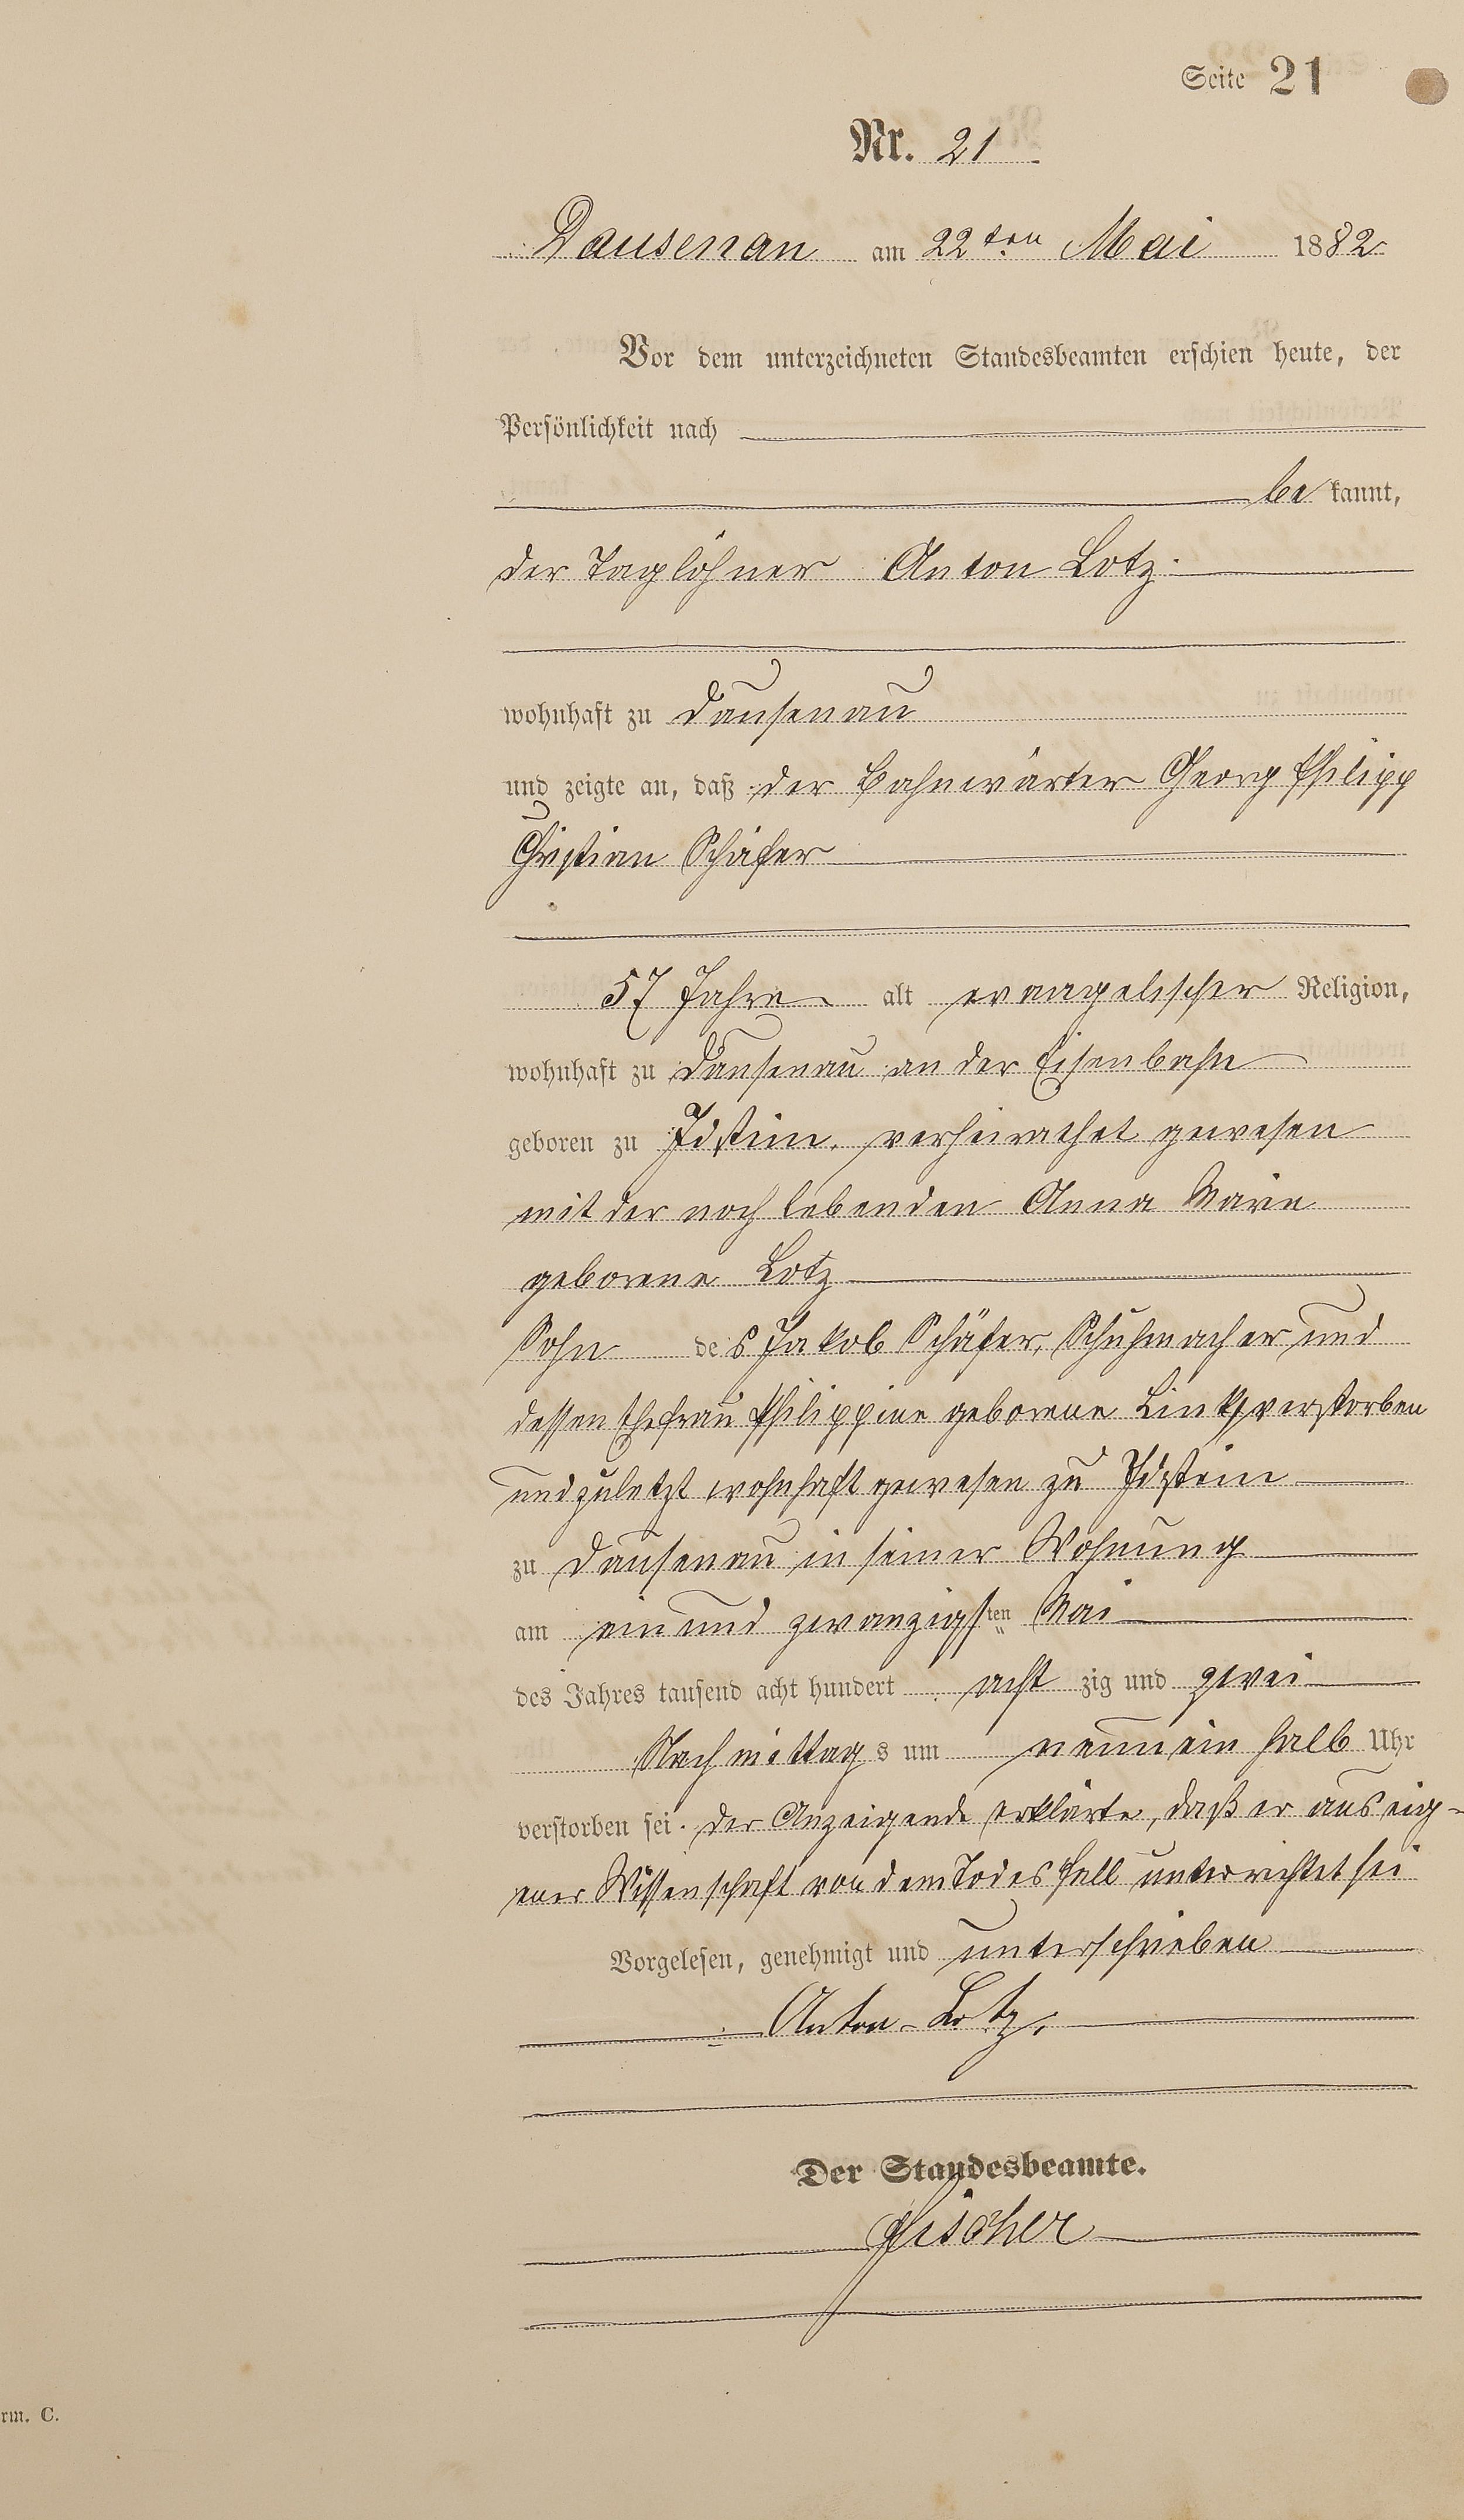 Seite 21
Nr. 21
Dausenau am 22ten Mai 1882
Vor dem unterzeichneten Standesbeamten erschien heute, der
Persönlichkeit nach
be kannt,
der Taglöhner Anton Lotz
wohnhaft zu Dausenau
und zeigte an, daß der Bahnwärter Georg Philipp
Christian Schäfer
57 Jahre alt evangelischer Religion,
wohnhaft zu Dausenau an der Eisenbahn
geboren zu Idstein, verheirathet gewesen
mit der noch lebenden Anna Marie
geborene Lotz
Sohn des Jakob Schäfer, Schuhmacher und
dessen Ehefrau Philippine geborene Link, verstorben
und zuletzt wohnhaft gewesen zu Idstein
zu Dausenau in seiner Wohnung
am ein und zwanzigsten Mai
des Jahres tausend acht hundert acht zig und zwei
Nachmittags um neun ein halb Uhr
verstorben sei. Der Anzeigende erklärte, daß er aus eig-
ener Wissenschaft von dem Todesfall unterrichtet sei
Vorgelesen, genehmigt und unterschrieben
Anton Lotz.
Der Standesbeamte.
Fischer
rm. C.